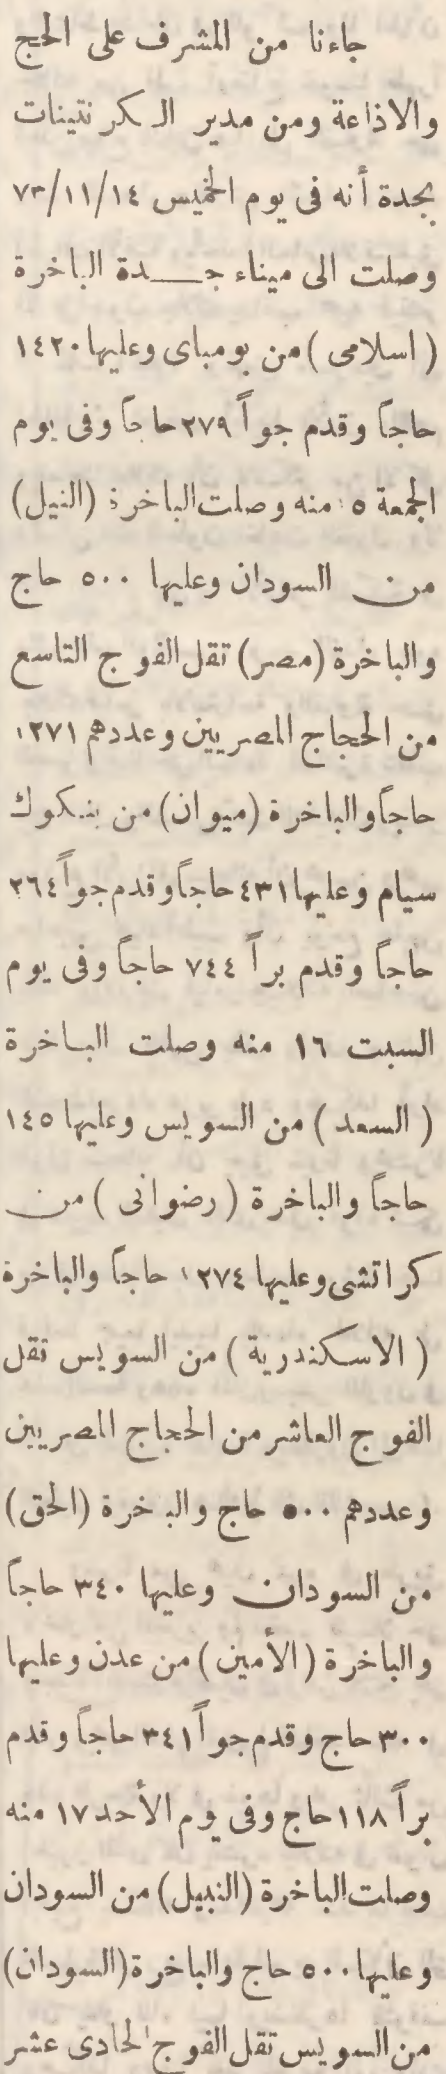 جاءنا من المشرف على الحج
والاذاعة ومن مدير الكرنتينات
بجدة أنه فى يوم الخميس ٧٣/١١/١٤
وصلت الى ميناء جـــدة الباخرة
( اسلامى ) من بومباى وعليها ١٤٢٠
حاجاً وقدم جواً ٢٧٩ حاجاً وفى يوم
الجمعة ١٥ منه وصلت الباخرة (النيل)
من السودان وعليها ٥٠٠ حاج
والباخرة (مصر) تقل الفوج التاسع
من الحجاج المصريين وعددهم ١٢٧١
حاجاً والباخرة (ميوان) من بنكوك
سيام وعليها ٤٣١ حاجاً وقدم جواً ٢٦٤
حاجاً وقدم براً ٧٤٤ حاجاً وفى يوم
السبت ١٦ منه وصلت الباخرة
( السعد ) من السويس وعليها ١٤٥
حاجاً والباخرة ( رضوانى ) من
كراتشى وعليها ١٢٧٤ حاجاً والباخرة
( الاسكندرية ) من السويس تقل
الفوج العاشر من الحجاج المصريين
وعددهم ٥٠٠ حاج والباخرة (الحق)
من السودان وعليها ٣٤٠ حاجاً
والباخرة ( الأمين ) من عدن وعليها
٣٠٠ حاج وقدم جواً ٣٤١ حاجاً وقدم
براً ١١٨ حاج وفى يوم الأحد ١٧ منه
وصلت الباخرة (النبيل) من السودان
وعليها ٥٠٠ حاج والباخرة (السودان)
من السويس تقل الفوج الحادى عشر